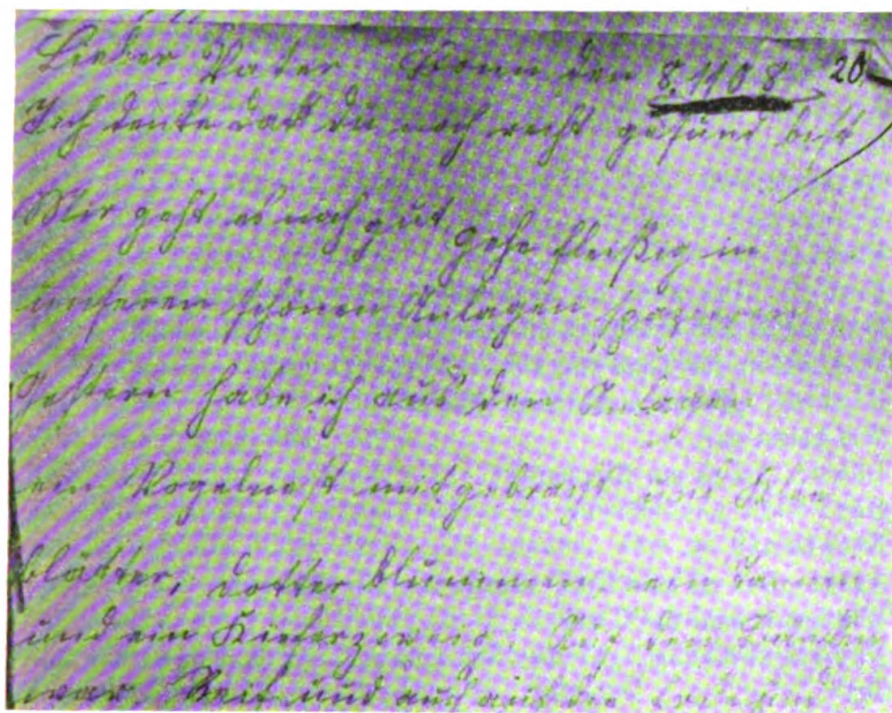 Lieber Vater Bonn den 8.1108 20
Ich denke daß du noch recht gesund bist
Mir geht es noch gut gehe fleißig in
unseren schönen Anlagen spazieren
Gestern habe ich aus den Anlagen
ein Vogelnest mitgebracht und
blätter, dotter blummen ein
und ein Kieferzweig. Auf den
war Reif und auch auf die